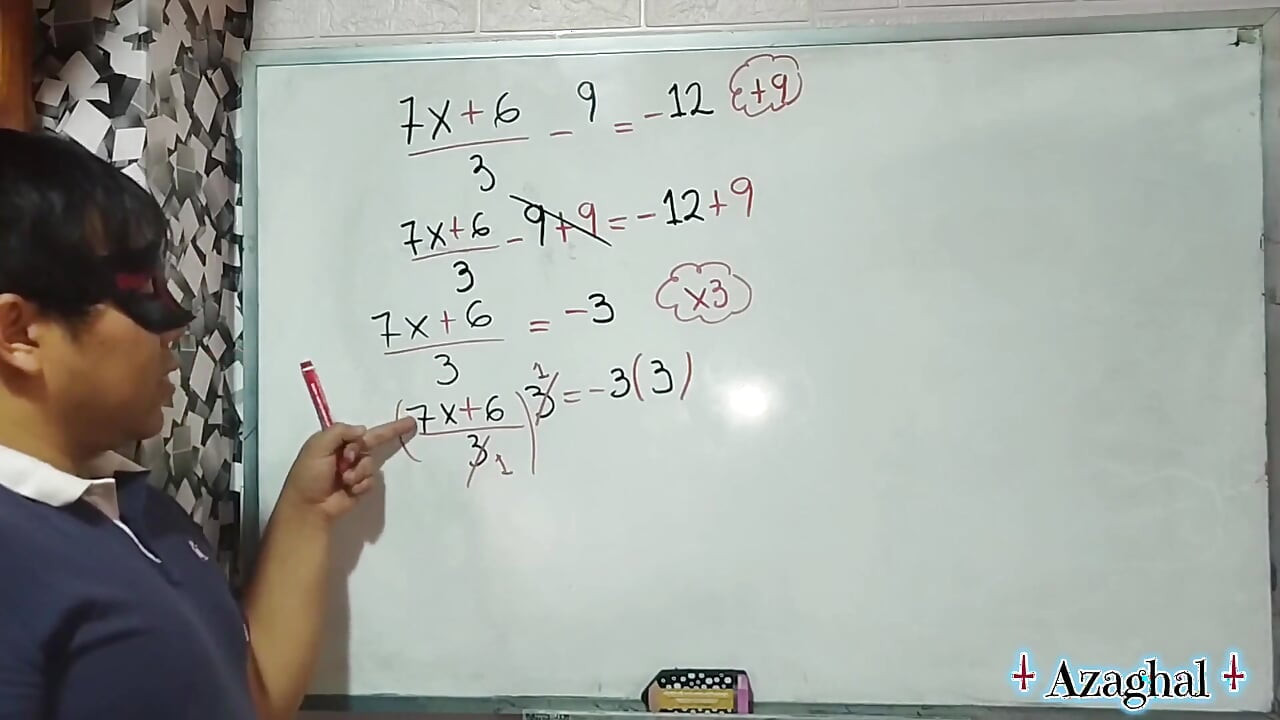 7x+6/3 - 9 = -12 +9
7x+6/3 - 9+9 = -12+9
7x+6/3 = -3 x3
(7x+6/3 1) 3 1 = -3(3)
† Azaghal †